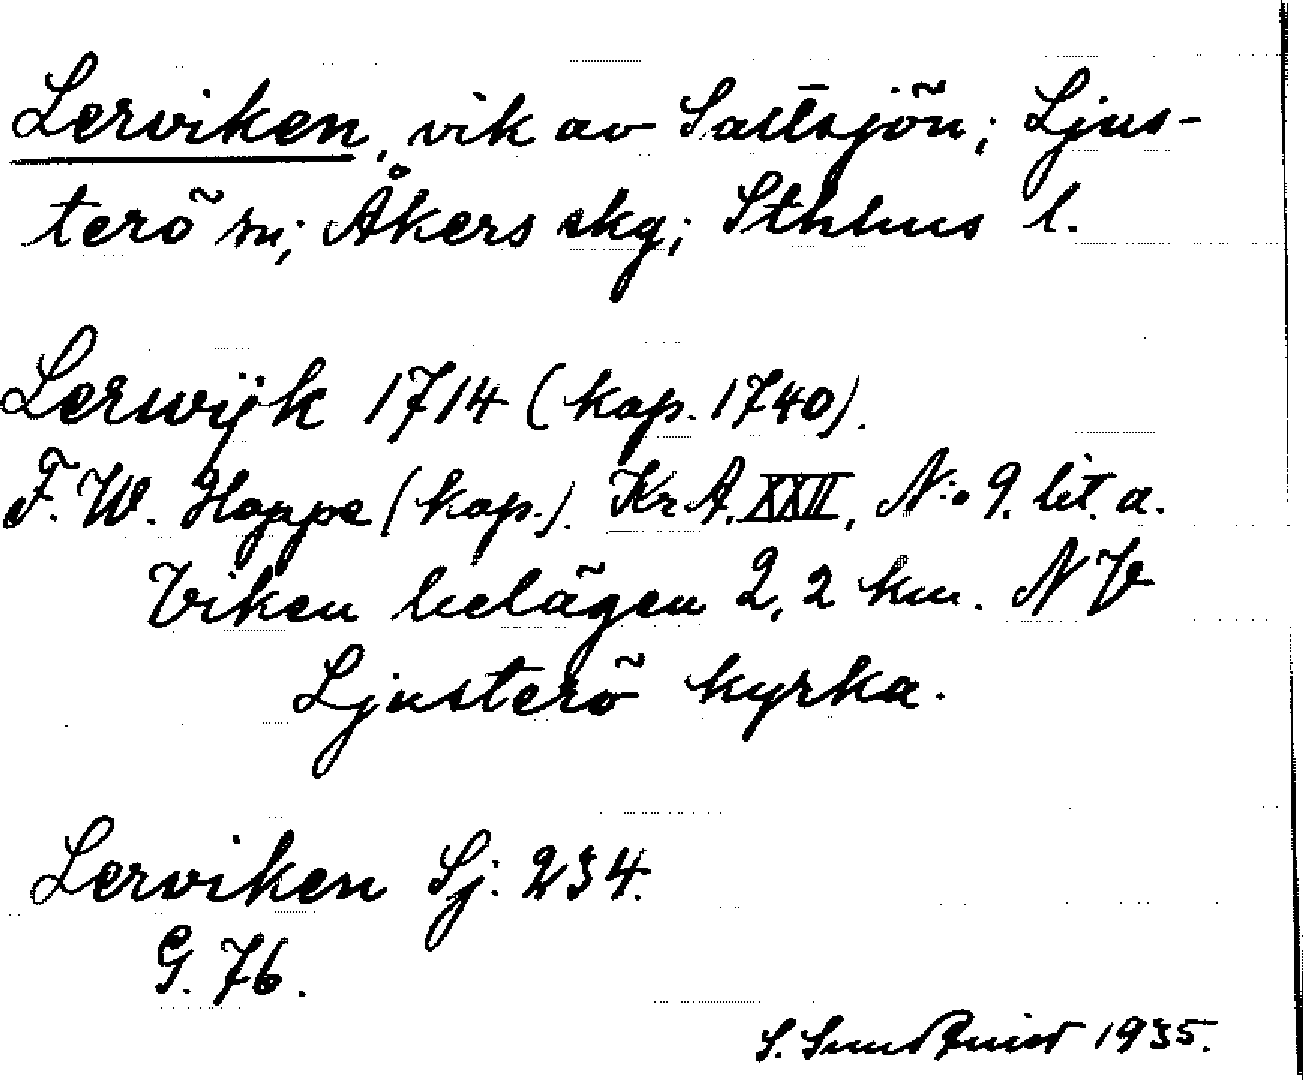 Lerviken, vik av Saltsjön; Ljus-
terö sn; Åkers skg; Sthlms l.
Lerwijk 1714 (kop. 1740).
F. W. Hoppe (kop.). Kr. A. XXII, N:o 9. lit. a.
Viken belägen 2,2 km. NV
Ljusterö kyrka.
Lerviken Sj. 234.
G. 76.
S. Sundquist 1935.